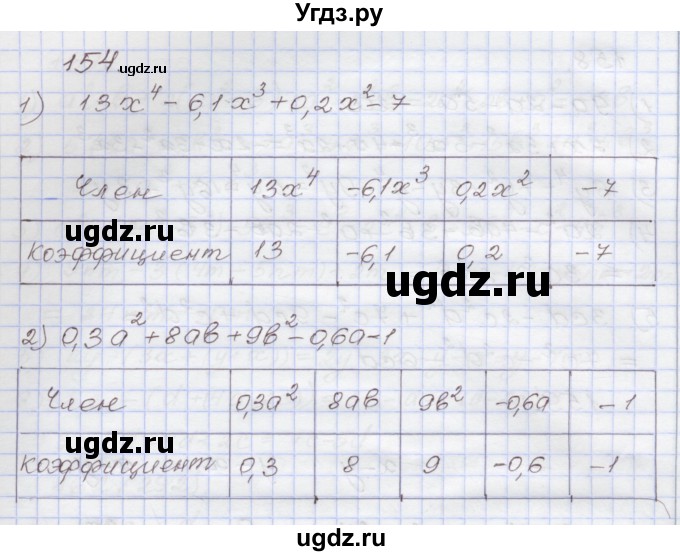 Угдз.ру
154 ugdz.ru
1) 13x⁴ - 6,1x³ + 0,2x² - 7
Член 13x⁴ -6,1x³ 0,2x² -7
ugdz.ru
коэффициент 13 -6,1 0,2 -7
ugdz.ru
ugdz.ru
2) 0,3a² + 8aв + 9в² - 0,6a - 1
Член 0,3a² 8aв 9в² -0,6a -1
ugdz.ru
коэффициент 0,3 8 9 -0,6 -1
ugdz.ru